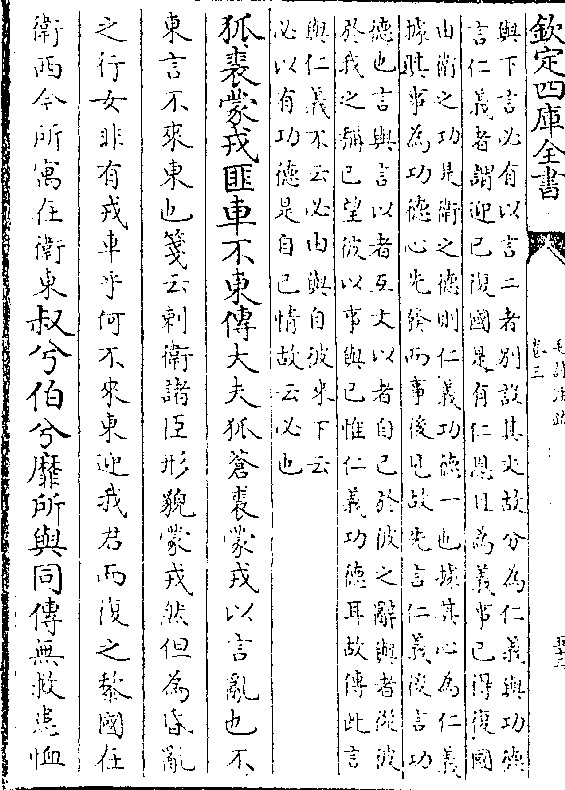 欽定四庫全書
與下言必有以言二者別設其文故分為仁義與功德
言仁義者謂迎已復國是有仁恩且為義事已得復國
由衛之功是衛之德則仁義功德一也據其心為仁義
據其事為功德心先發而事後見故先言仁義後言功
德也言與言以者互文以者自已於彼之辭與者從彼
於我之稱已望彼以事與已惟仁義功德耳故傳此言
與仁義不云必由與自彼來下云
必以有功德是自已情故云必也
狐裘蒙戎匪車不東傳大夫狐蒼裘蒙戎以言亂也不
東言不來東也箋云刺衛諸臣形貌蒙戎然但為昏亂
之行女非有戎車乎何不來東迎我君而復之黎國在
衛西今所寓在衛東叔兮伯兮靡所與同傳無救患恤
毛詩注疏
卷三